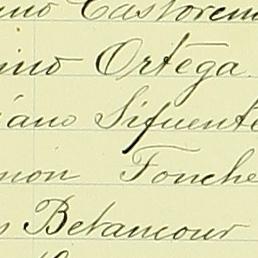 ino Castoren
ino Ortega
iano Sifuente
mon Fonche
s Betancour